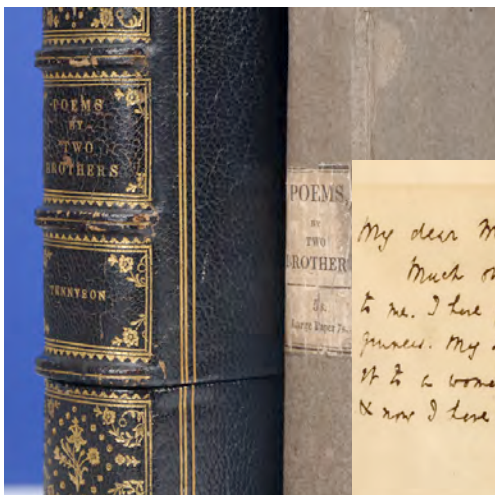 POEMS
BY
TWO
BROTHERS
TENNYSON
POEMS,
BY
TWO
BROTHER
5s.
Large Paper 7s.
My dear M
Much
to me. I have
My
it to a
& now I have